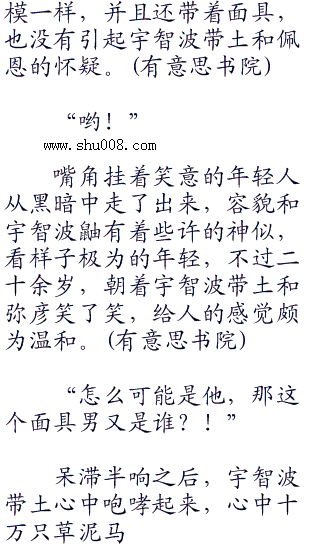 模一样，并且还带着面具，
也没有引起宇智波带土和佩
恩的怀疑。(有意思书院)
“哟！”
www.shu008.com
嘴角挂着笑意的年轻人
从黑暗中走了出来，容貌和
宇智波鼬有着些许的神似，
看样子极为的年轻，不过二
十余岁，朝着宇智波带土和
弥彦笑了笑，给人的感觉颇
为温和。(有意思书院)
“怎么可能是他，那这
个面具男又是谁？！”
呆滞半响之后，宇智波
带土心中咆哮起来，心中十
万只草泥马